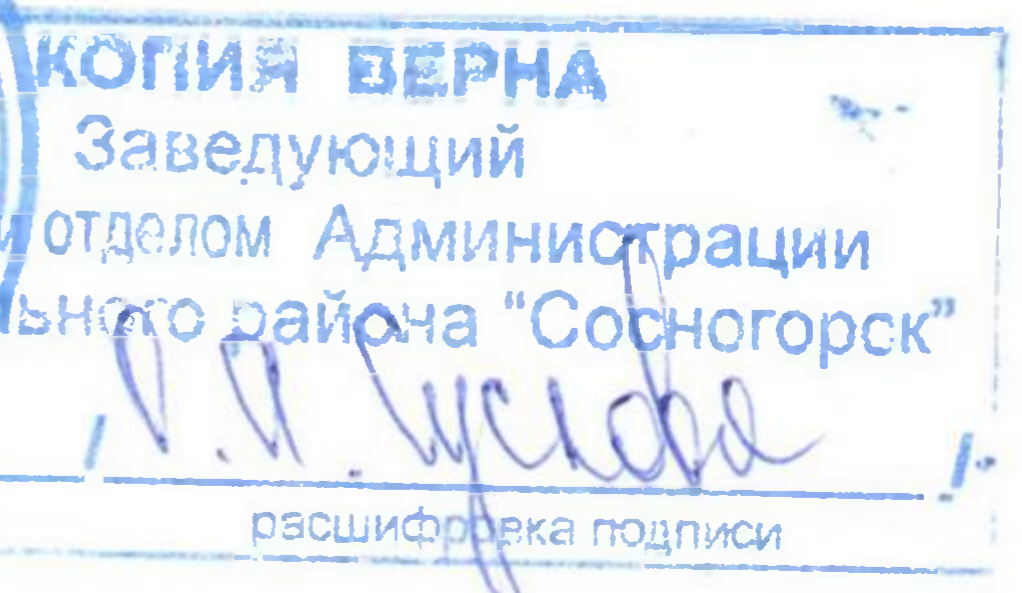 КОПИЯ ВЕРНА
Заведующий
отделом Администрации
ьного района “Сосногорск”
/ /
расшифровка подписи